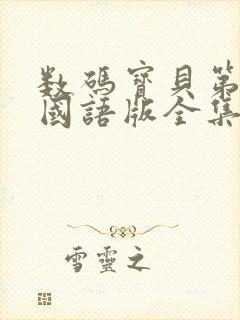 数碼寶貝第
國語版全集
雪靈之